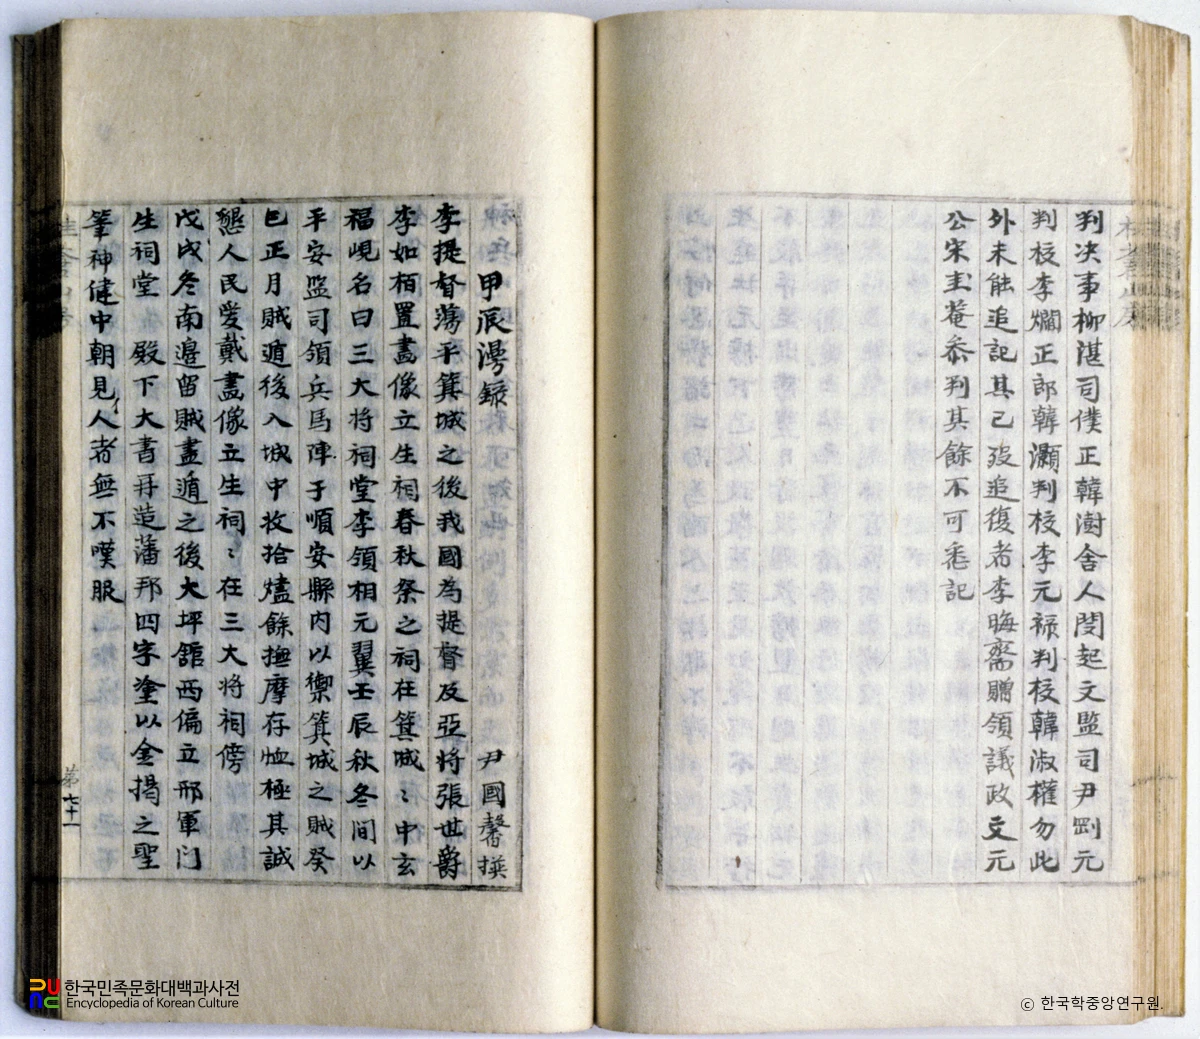 判決事柳湛司僕正韓澍舍人閔起文監司尹剛元
判校李爛正郎韓灝判校李元祿判校韓淑權勿此
外未能追記其已歿追復者李晦齋贈領議政文元
公宋圭菴叅判其餘不可悉記
甲辰漫錄 尹國馨撰
李提督蕩平箕城之後我國為提督及亞將張世爵
李如栢置畵像立生祠春秋祭之祠在箕城〻中玄
福峴名曰三大将祠堂李領相元翼壬辰秋冬間以
平安监司領兵馬陣于順安縣内以禦箕城之賊癸
巳正月賊遁後入城中收拾燼餘撫摩存恤極其誠
懇人民愛戴畵像立生祠〻在三大将祠傍
戊戌冬南邊留賊盡遁之後大坪舘西偏立邢軍门
生祠堂 殿下大書再造藩邦四字塗以金揭之聖
筆神健中朝見人者無不嘆服
第七十一
한국민족문화대백과사전
Encyclopedia of Korean Culture
© 한국학중앙연구원.